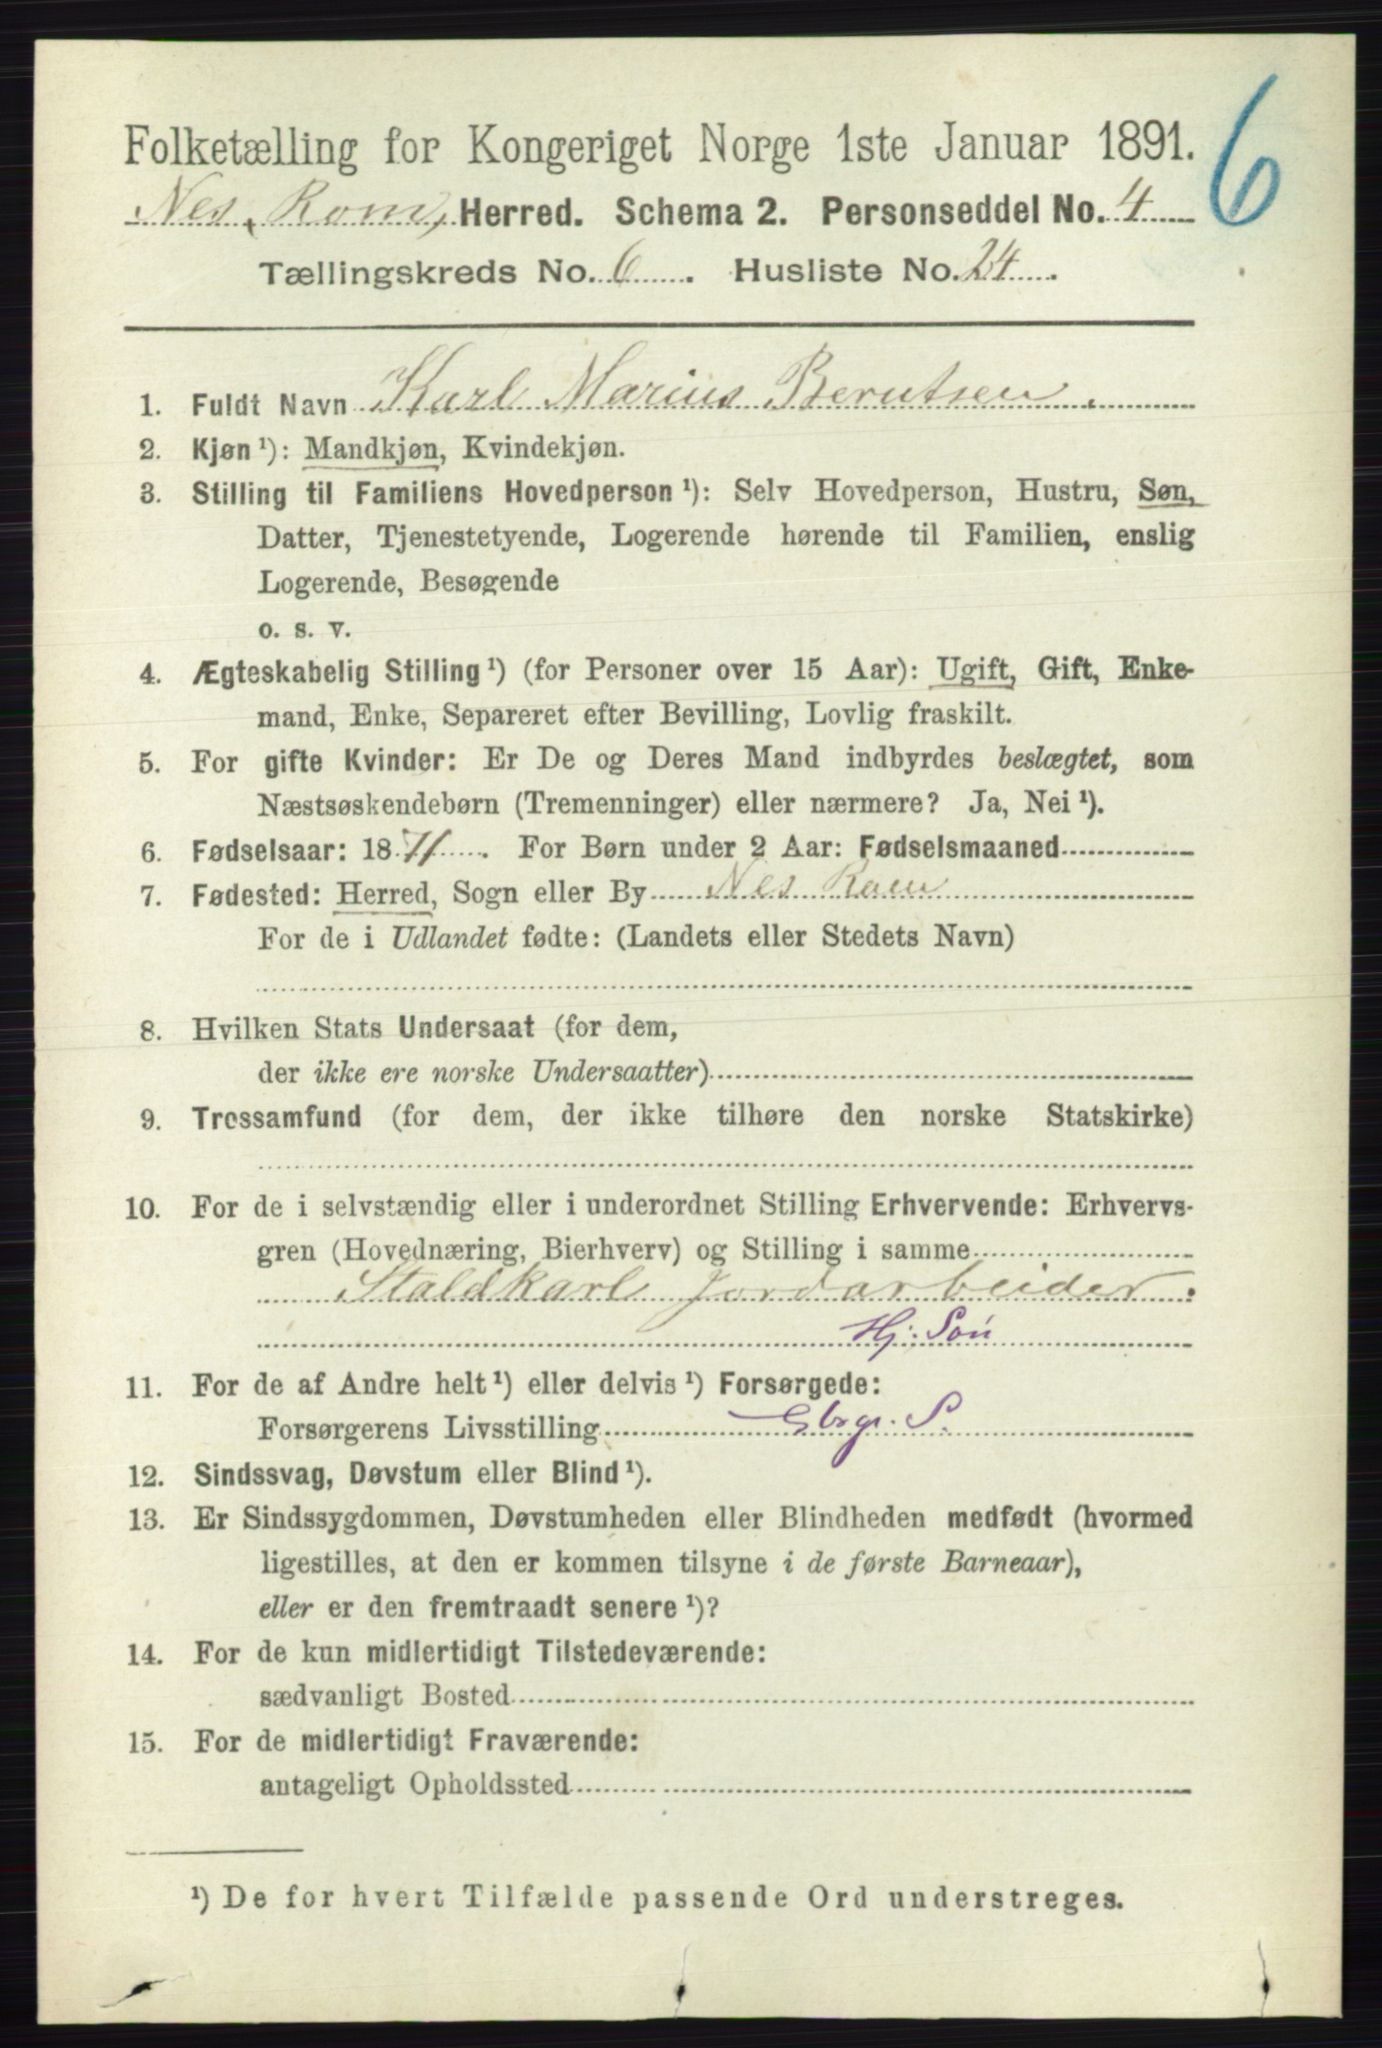 6
Folketælling for Kongeriget Norge 1ste Januar 1891.
Nes, Rom, Herred. Schema 2. Personseddel No. 4
Tællingskreds No. 6. Husliste No. 24.
1. Fuldt Navn Karl Marius Berntsen.
2. Kjøn ¹): Mandkjøn, Kvindekjøn.
3. Stilling til Familiens Hovedperson ¹): Selv Hovedperson, Hustru, Søn,
Datter, Tjenestetyende, Logerende hørende til Familien, enslig
Logerende, Besøgende
o. s. v.
4. Ægteskabelig Stilling ¹) (for Personer over 15 Aar): Ugift, Gift, Enke-
mand, Enke, Separeret efter Bevilling, Lovlig fraskilt.
5. For gifte Kvinder: Er De og Deres Mand indbyrdes beslægtet, som
Næstsøskendebørn (Tremenninger) eller nærmere? Ja, Nei ¹).
6. Fødselsaar: 1871. For Børn under 2 Aar: Fødselsmaaned
7. Fødested: Herred, Sogn eller By Nes Rom
For de i Udlandet fødte: (Landets eller Stedets Navn)
8. Hvilken Stats Undersaat (for dem,
der ikke ere norske Undersaatter)
9. Trossamfund (for dem, der ikke tilhøre den norske Statskirke)
10. For de i selvstændig eller i underordnet Stilling Erhvervende: Erhvervs-
gren (Hovednæring, Bierhverv) og Stilling i samme
Staldkarl Jordarbeider.
Hj. Søn
11. For de af Andre helt ¹) eller delvis ¹) Forsørgede:
Forsørgerens Livsstilling Gbrgr. S.
12. Sindssvag, Døvstum eller Blind ¹).
13. Er Sindssygdommen, Døvstumheden eller Blindheden medfødt (hvormed
ligestilles, at den er kommen tilsyne i de første Barneaar),
eller er den fremtraadt senere ¹)?
14. For de kun midlertidigt Tilstedeværende:
sædvanligt Bosted
15. For de midlertidigt Fraværende:
antageligt Opholdssted
¹) De for hvert Tilfælde passende Ord understreges.